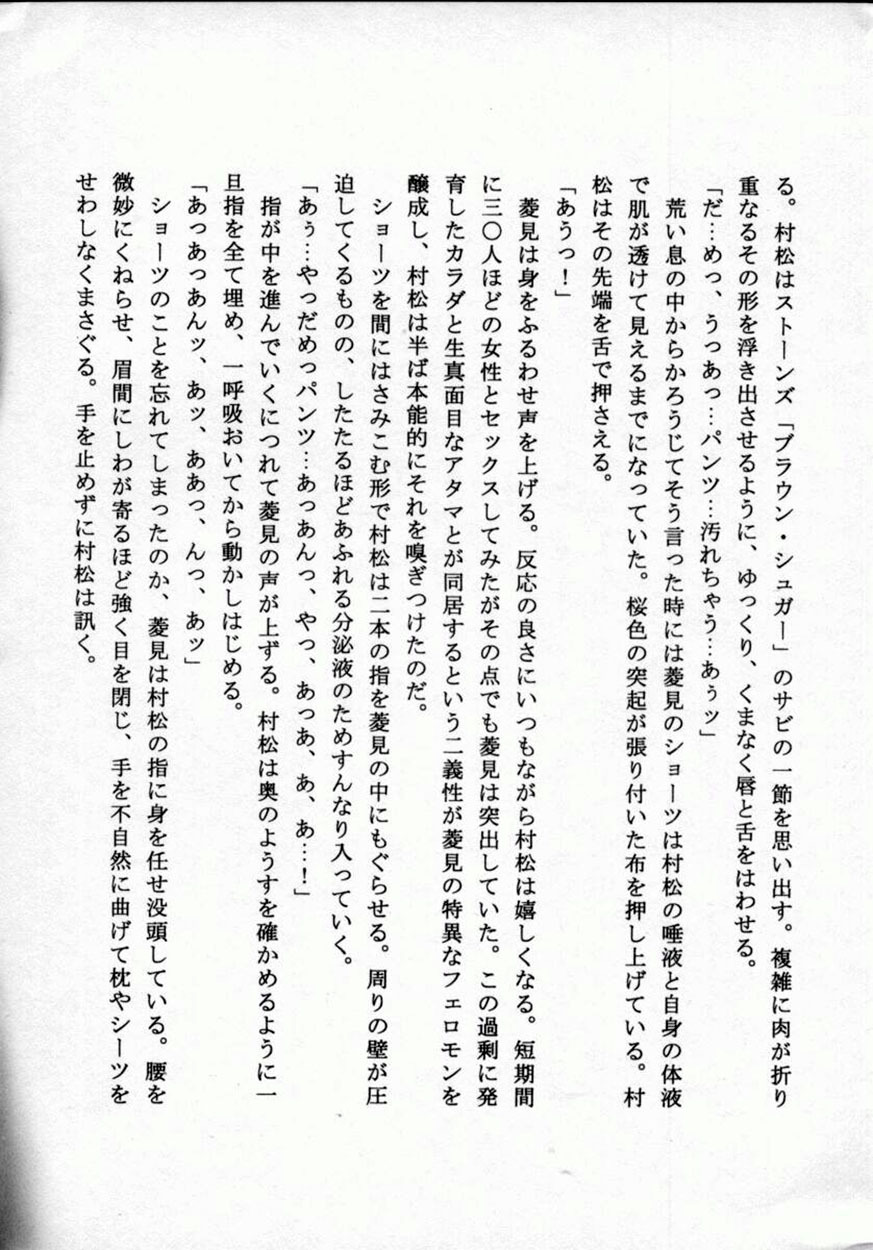 る。村松はストーンズ「ブラウン・シュガー」のサビの一節を思い出す。複雑に肉が折り
重なるその形を浮き出させるように、ゆっくり、くまなく唇と舌をはわせる。
「だ…めっ、うっあっ…パンツ…汚れちゃう…あぅッ」
　荒い息の中からかろうじてそう言った時には菱見のショーツは村松の唾液と自身の体液
で肌が透けて見えるまでになっていた。桜色の突起が張り付いた布を押し上げている。村
松はその先端を舌で押さえる。
「あうっ！」
　菱見は身をふるわせ声を上げる。反応の良さにいつもながら村松は嬉しくなる。短期間
に三〇人ほどの女性とセックスしてみたがその点でも菱見は突出していた。この過剰に発
育したカラダと生真面目なアタマとが同居するという二義性が菱見の特異なフェロモンを
醸成し、村松は半ば本能的にそれを嗅ぎつけたのだ。
　ショーツを間にはさみこむ形で村松は二本の指を菱見の中にもぐらせる。周りの壁が圧
迫してくるものの、したたるほどあふれる分泌液のためすんなり入っていく。
「あぅ…やっだめっパンツ…あっあんっ、やっ、あっあ、あ、あ…！」
　指が中を進んでいくにつれて菱見の声が上ずる。村松は奥のようすを確かめるように一
旦指を全て埋め、一呼吸おいてから動かしはじめる。
「あっあっあんッ、あッ、ああっ、んっ、あッ」
　ショーツのことを忘れてしまったのか、菱見は村松の指に身を任せ没頭している。腰を
微妙にくねらせ、眉間にしわが寄るほど強く目を閉じ、手を不自然に曲げて枕やシーツを
せわしなくまさぐる。手を止めずに村松は訊く。